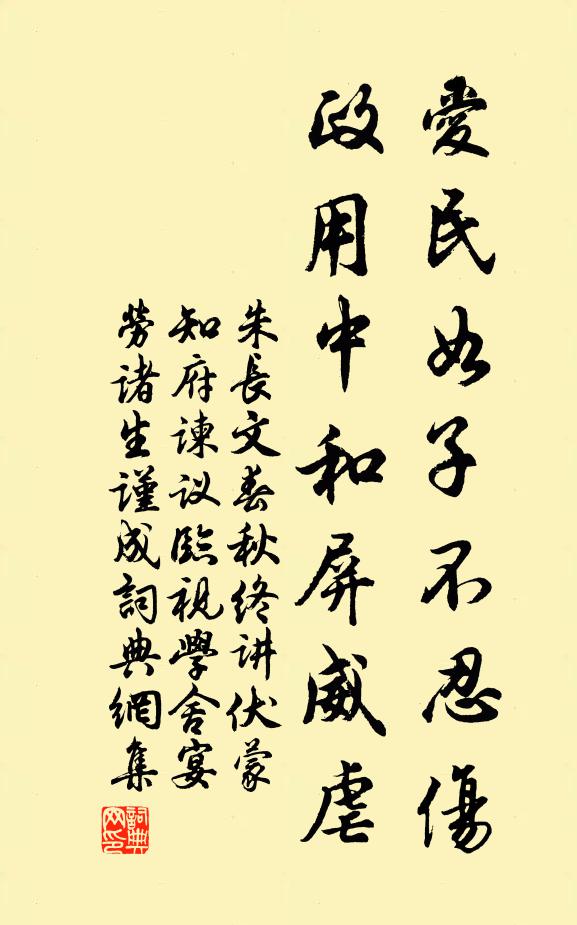 愛民如子不忍傷
政用中和屏威虐
朱長文春秋终讲伏蒙
知府諫议臨視學舍宴
勞诸生謹成詞典網集
詞典网印